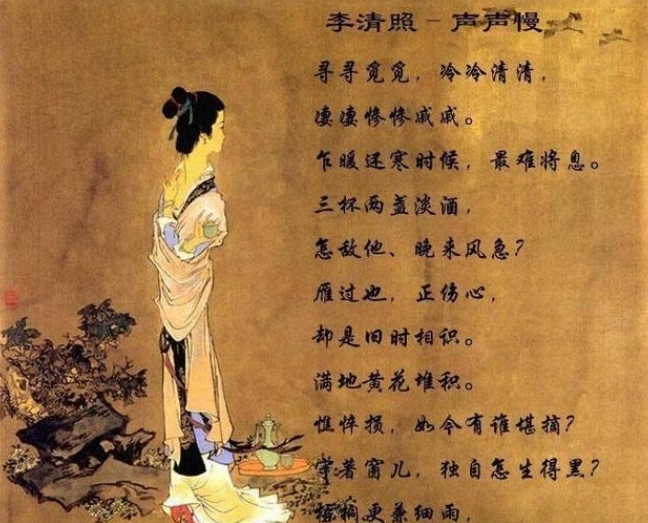 李清照－声声慢
寻寻觅觅，冷冷清清，
凄凄惨惨戚戚。
乍暖还寒时候，最难将息。
三杯两盏淡酒，
怎敌他、晚来风急？
雁过也，正伤心，
却是旧时相识。
满地黄花堆积。
憔悴损，如今有谁堪摘？
守著窗儿，独自怎生得黑？
梧桐更兼细雨，